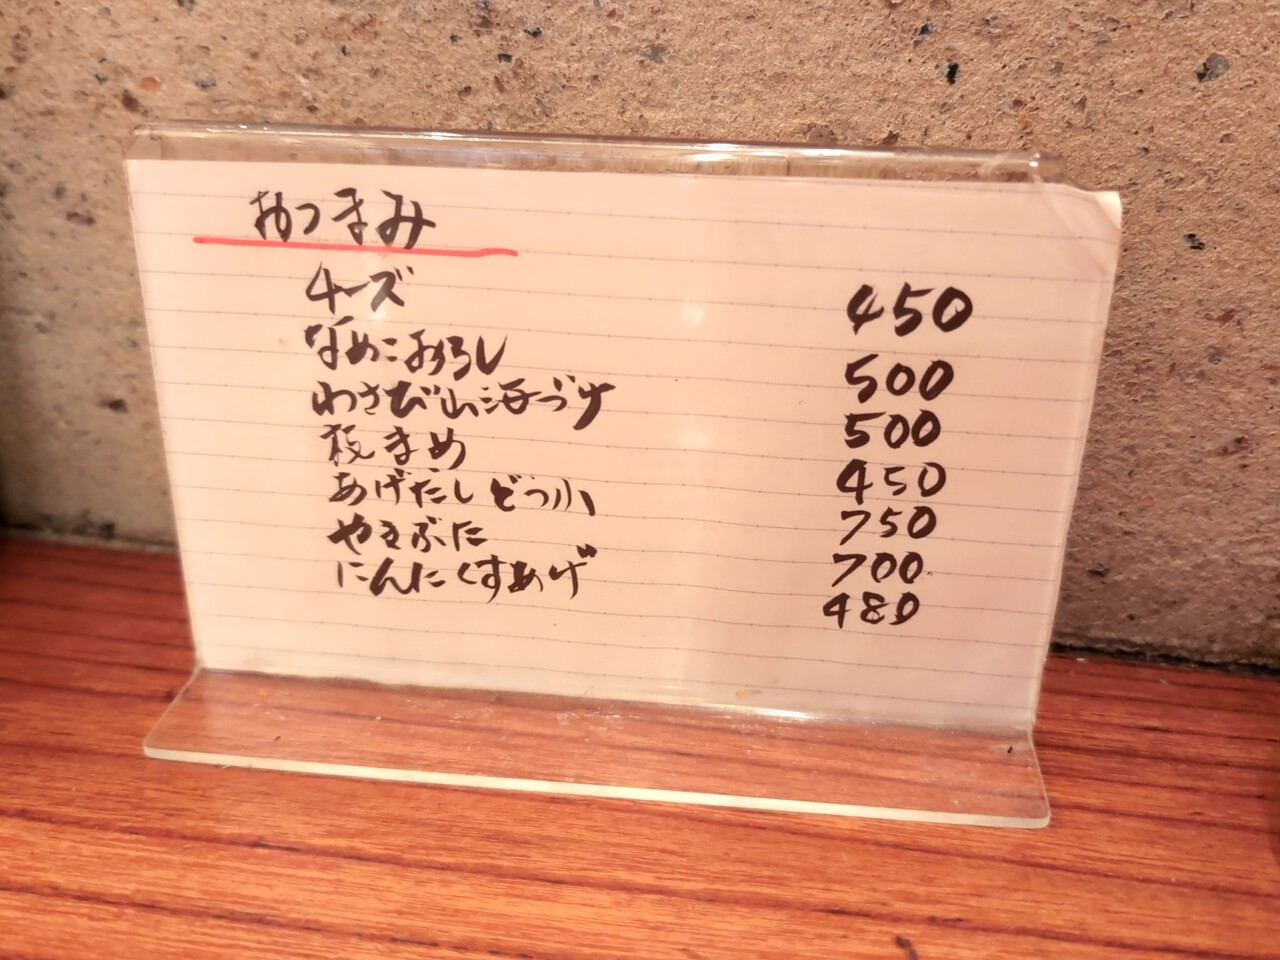 おつまみ
チーズ 450
なめこおろし 500
わさび山海づけ 500
枝まめ 450
あげだしどうふ 750
やきぶた 700
にんにくすあげ 480